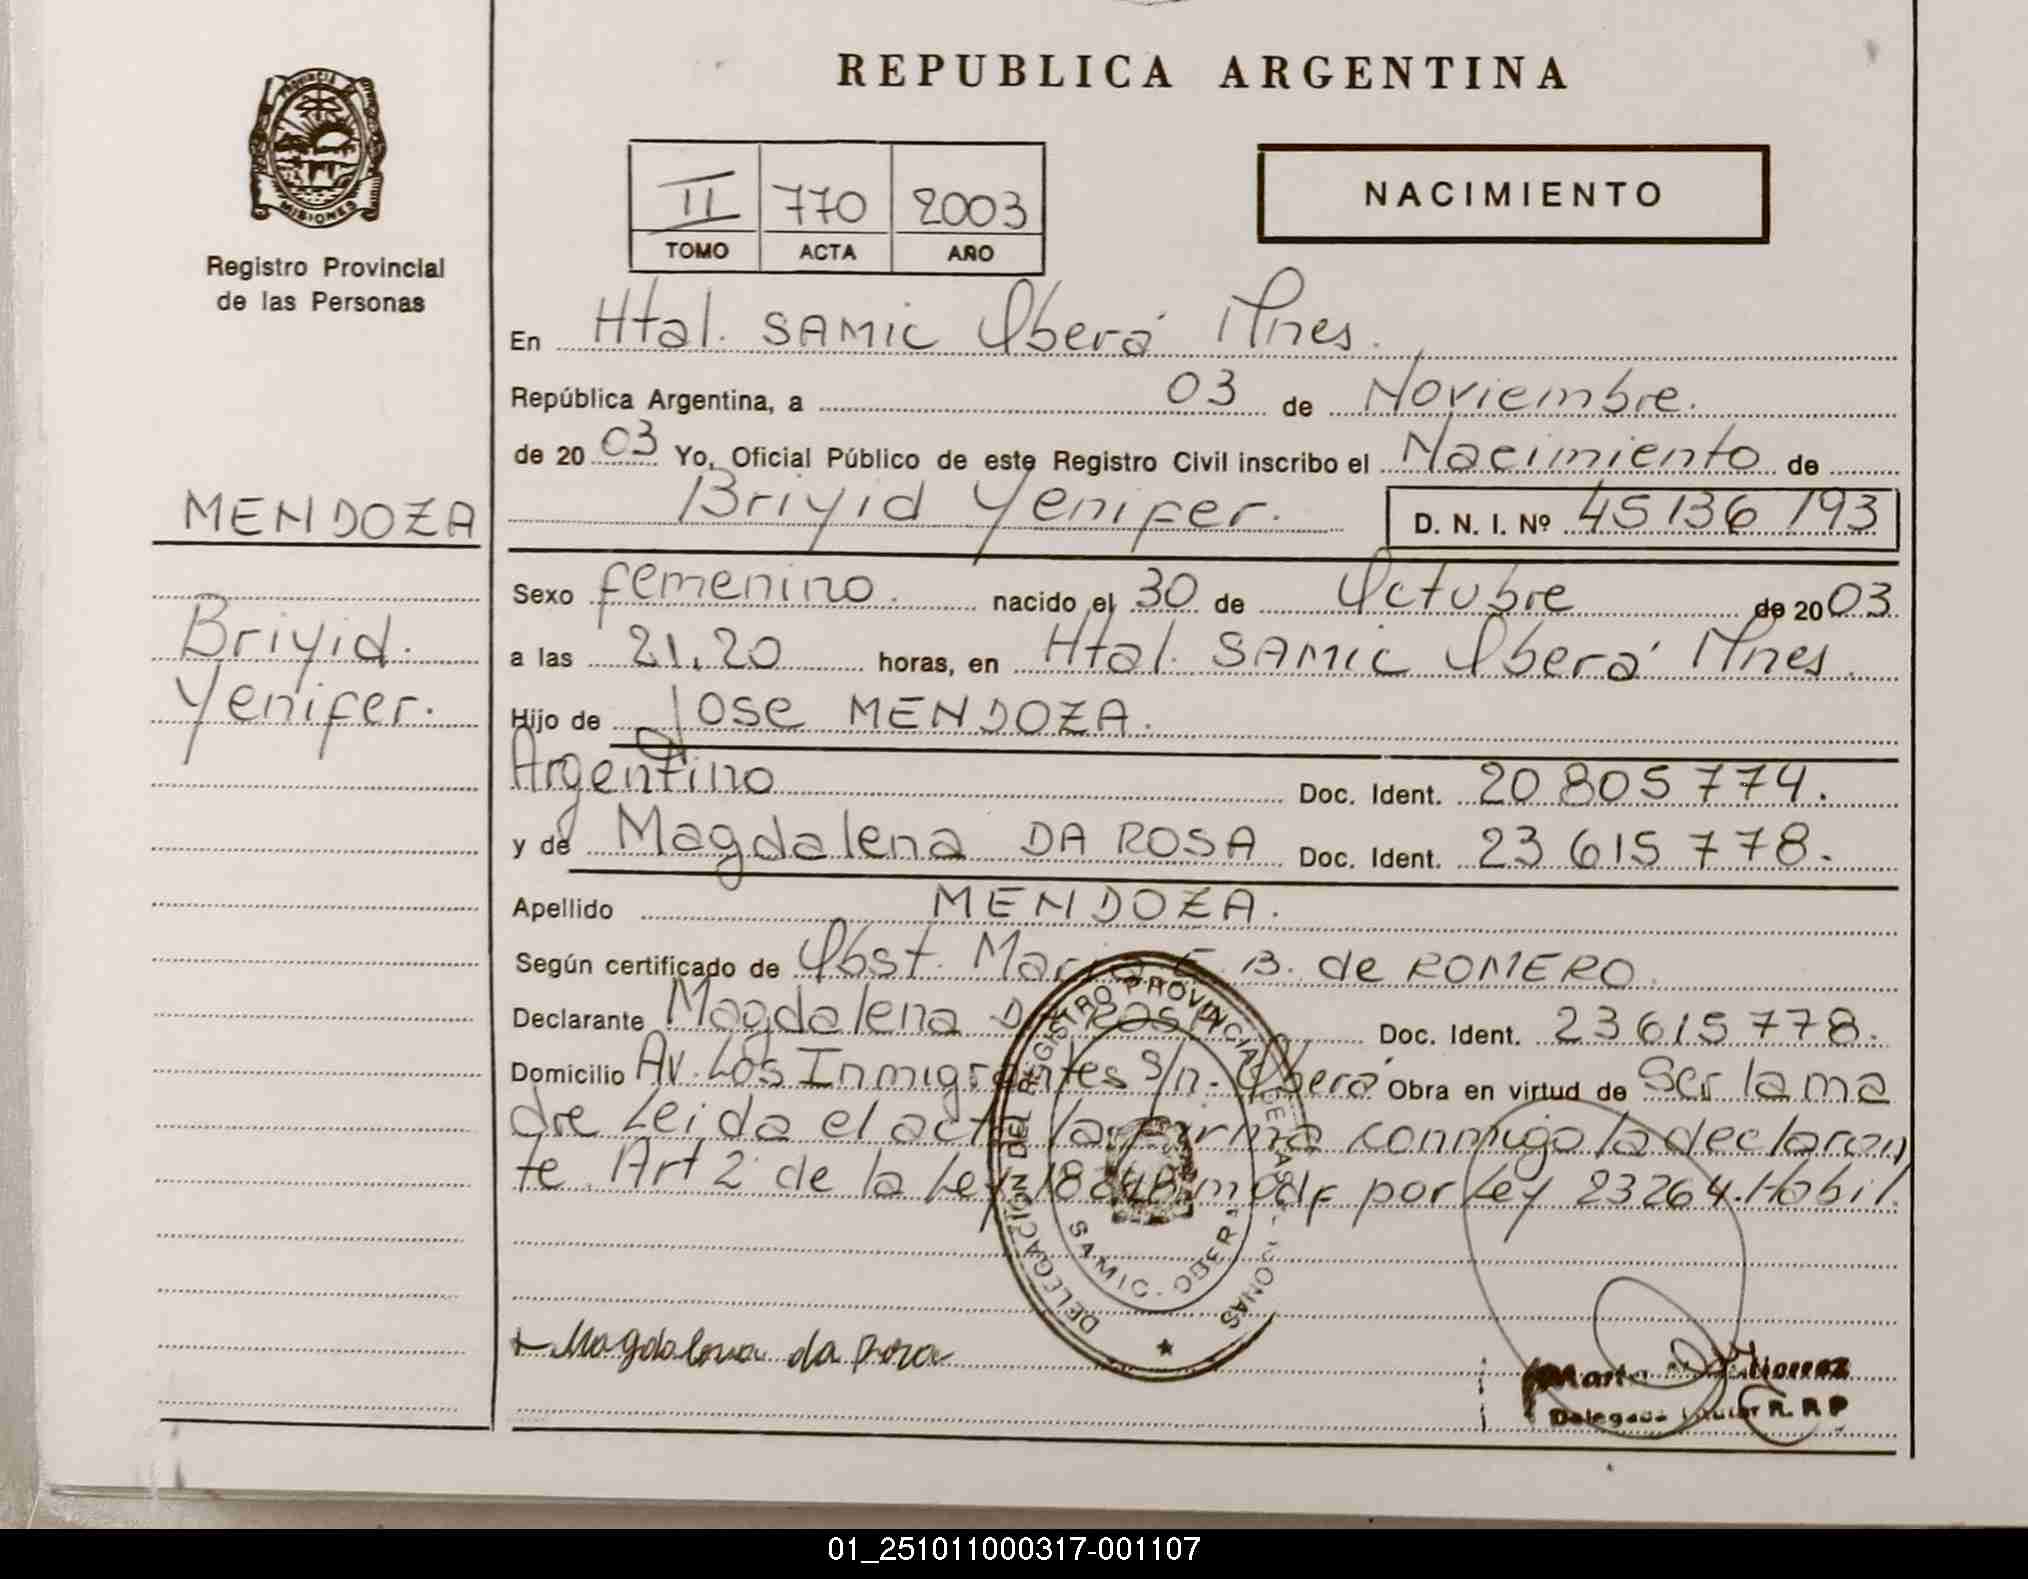 REPUBLICA ARGENTINA
PROVINCIA DE
MISIONES
Registro Provincial
de las Personas
II 770 2003
TOMO ACTA AÑO
NACIMIENTO
En Htal. SAMIC Oberá Mnes.
República Argentina, a 03 de Noviembre.
de 20 03 Yo, Oficial Público de este Registro Civil inscribo el Nacimiento de
Briyid Yenifer. D. N. I. Nº 45 136 793
MENDOZA
Briyid.
Yenifer.
Sexo femenino. nacido el 30 de Octubre de 20 03.
a las 21.20 horas, en Htal. SAMIC Oberá Mnes.
Hijo de Jose MENDOZA.
Argentino Doc. Ident. 20 805 774.
y de Magdalena DA ROSA Doc. Ident. 23 615 778.
Apellido MENDOZA.
Según certificado de Obst. Maria E. B. de ROMERO.
Declarante Magdalena DA ROSA Doc. Ident. 23 615 778.
Domicilio Av. Los Inmigrantes S/n. Oberá Obra en virtud de Ser la ma
dre Leida el acta la firma conmigo la declaran
te. Art 2 de la Ley 18248 modf por Ley 23264. Habil.
DELEGACION DEL REGISTRO PROVINCIAL DE LAS PERSONAS
SAMIC - OBERA
Magdalena da Rosa
Marta
Delegada Titular R. P. P
01_251011000317-001107